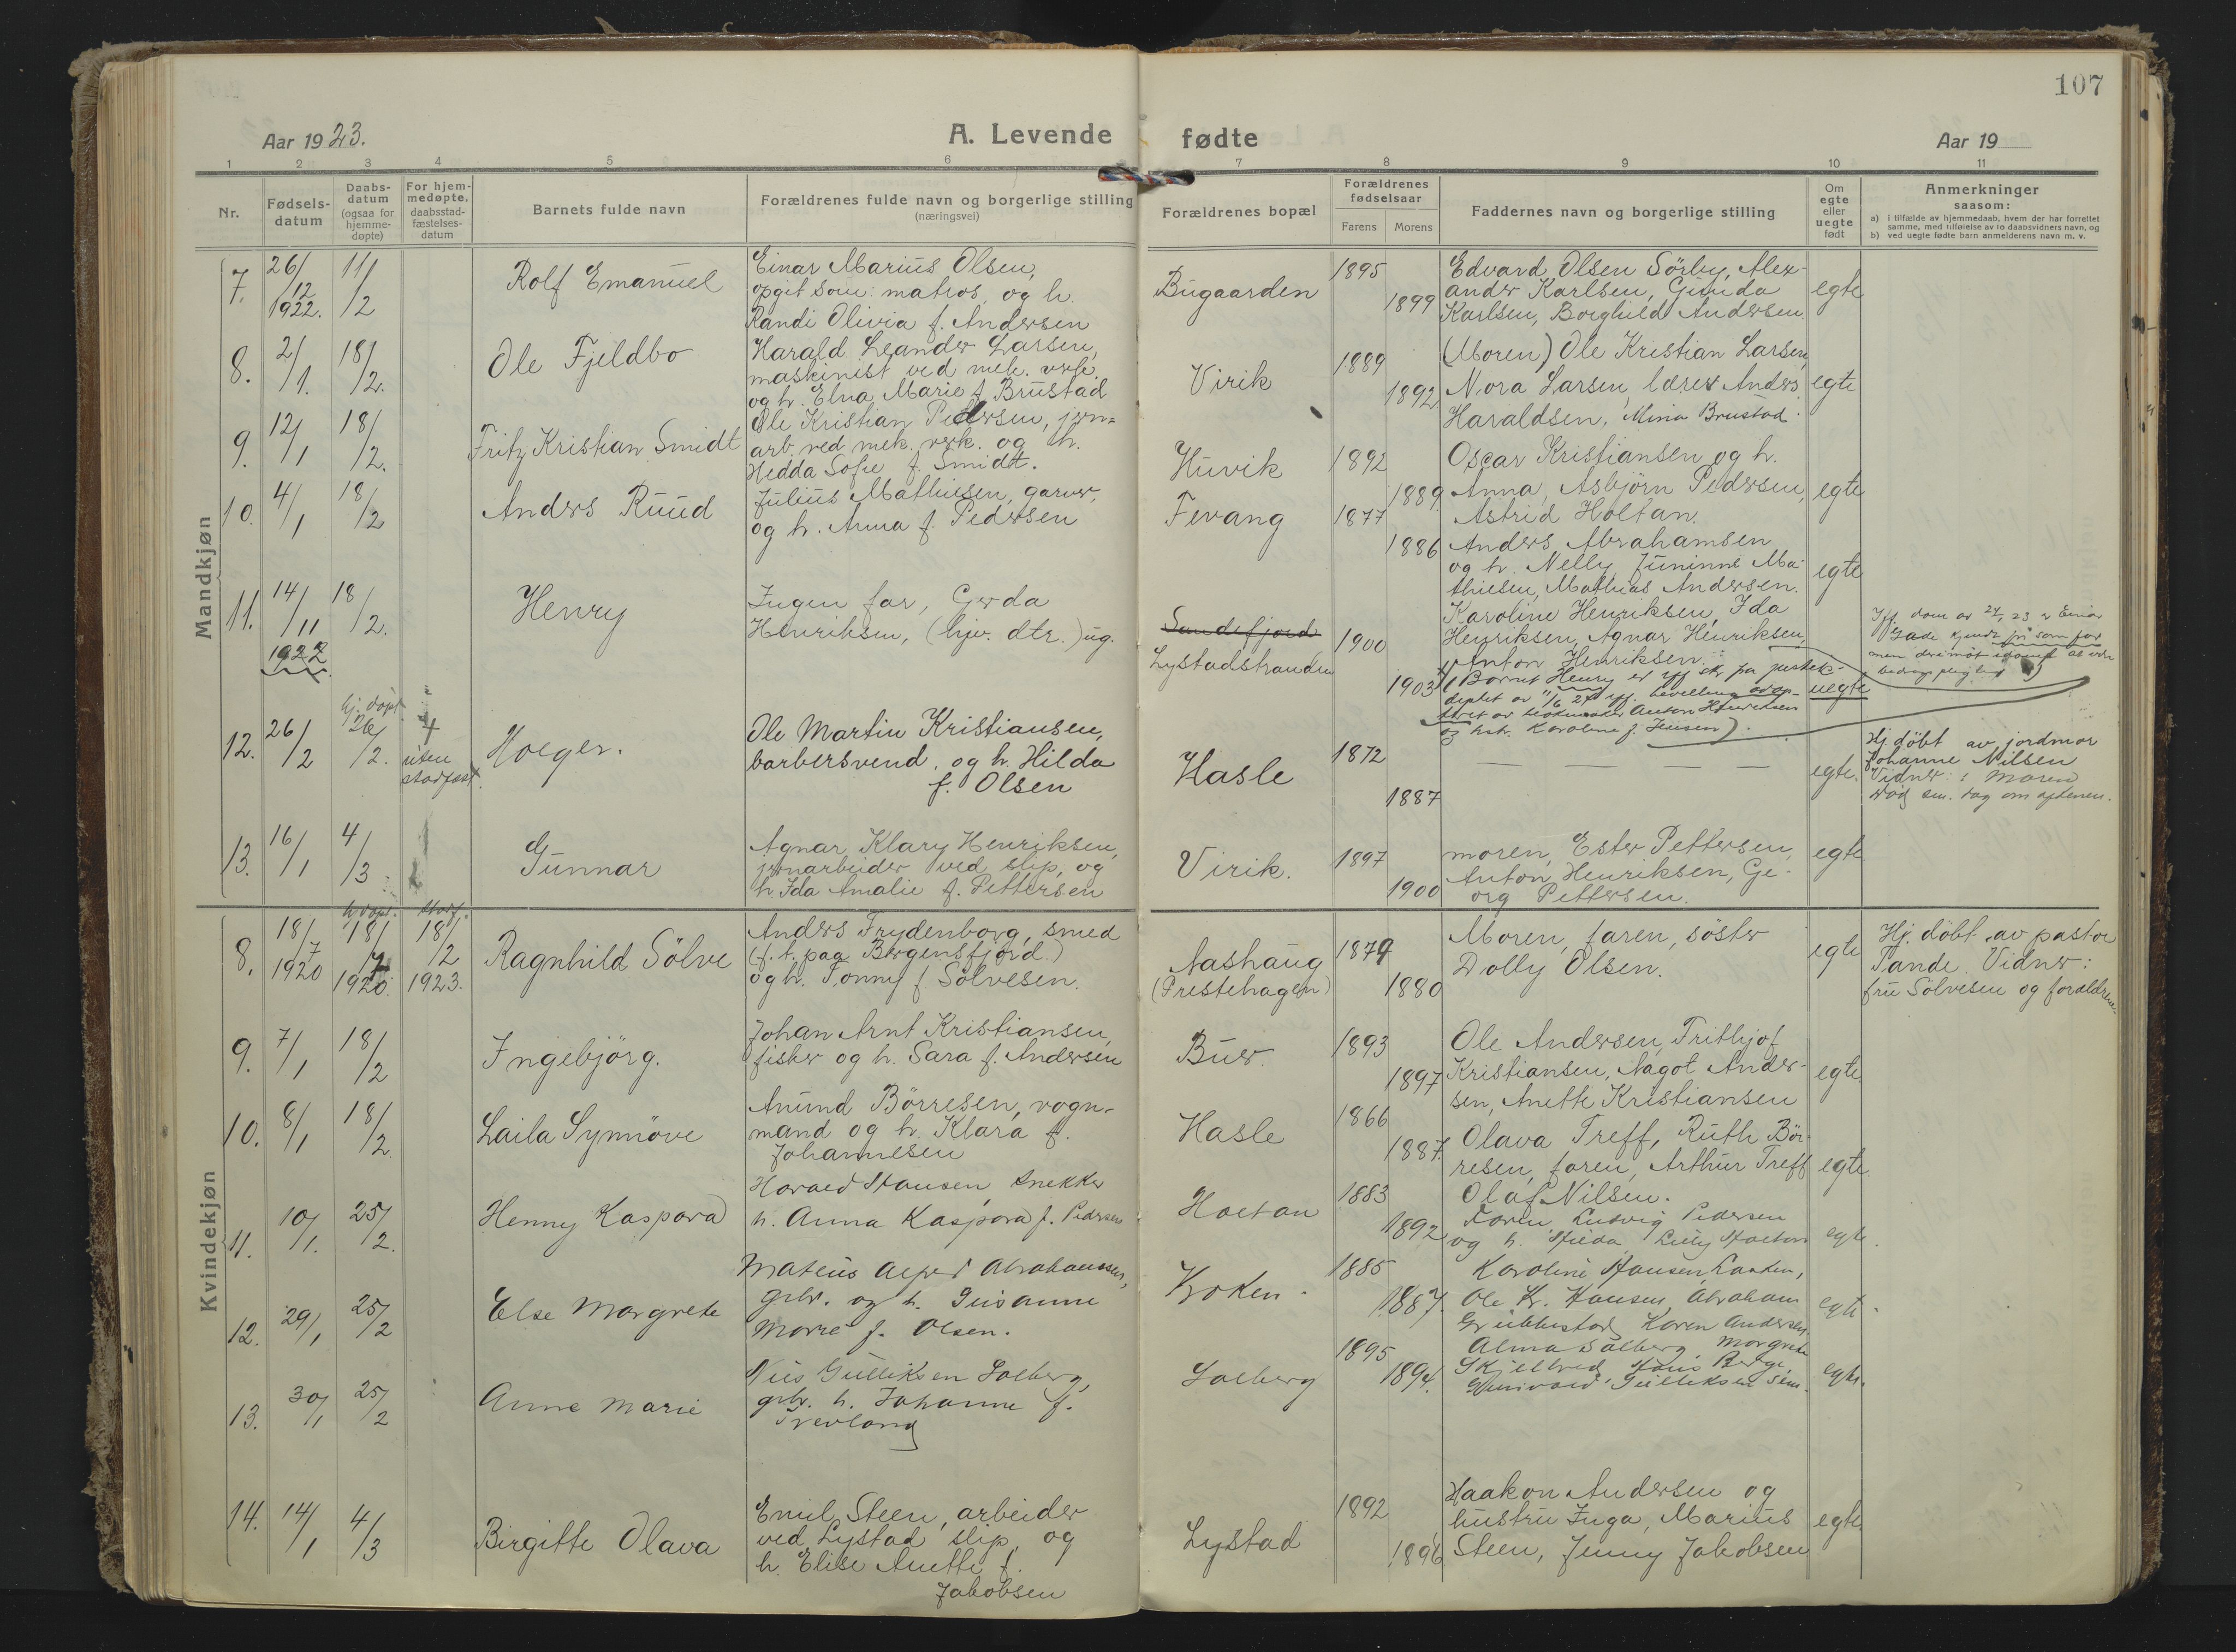 107
Aar 1923.
A. Levende fødte
Aar 19
1 2 3 4 5 6 7 8 9 10 11
Nr.
Fødsels-
datum
Daabs-
datum
(ogsaa for
hjemme-
døpte)
For hjem-
medøpte,
daabsstad-
fæstelses-
datum
Barnets fulde navn
Forældrenes fulde navn og borgerlige stilling
(næringsvei)
Forældrenes bopæl
Forældrenes
fødselsaar
Farens Morens
Faddernes navn og borgerlige stilling
Om
egte
eller
uegte
født
Anmerkninger
saasom:
a) i tilfælde av hjemmedaab, hvem der har forrettet
samme, med tilføielse av to daabsvidners navn, og
b) ved uegte fødte barn anmelderens navn m. v.
Mandkjøn
7. 26/12 1922. 11/2 Rolf Emanuel
Einar Marius Olsen,
opgit som: matros, og h.
Randi Olivia f. Andersen
Bugaarden 1895 1899
Edvard Olsen Sörby, Alex-
ander Karlsen, Gunda
Karlsen, Borghild Andersen
egte
8. 2/1. 18/2. Ole Fjeldbo
Harald Leander Larsen,
maskinist ved mek. verk.
og h. Elna Marie f. Brustad
Virik 1889 1892
(Moren) Ole Kristian Larsen,
Nora Larsen, lærer Anders
Haraldsen, Mina Brustad.
egte
9. 12/1 18/2. Fritz Kristian Smidt
Ole Kristian Pedersen, jern-
arb. ved mek. verk. og h.
Hedda Sofie f. Smidt.
Huvik 1892 1889.
Oscar Kristiansen og h.
Anna, Asbjörn Pedersen,
Astrid Holtan.
egte
10. 4/1 18/2 Anders Ruud
Julius Mathiesen, garver,
og h. Anna f. Pedersen
Fevang 1877 1886
Anders Abrahamsen
og h. Nelly Juninne Ma-
thiesen, Mathias Andersen.
egte
11. 14/11 1922 18/2. Henry
Ingen far, Gerda
Henriksen, (hjv. dtr.) ug.
Sandefjord
Lystadstranden 1900 1903
Karoline Henriksen, Ida
Henriksen, Agnar Henriksen,
Anton Henriksen.
(Barnet Henry er
Anton Henriksen
og hst. Karoline f. Jensen).
uegte
12. 26/2 hj. döpt 26/2. uten
stadfæst. Holger.
Ole Martin Kristiansen,
barbersvend, og h. Hilda
f. Olsen
Hasle 1872 1887
— — — —
egte.
Hj. döbt av jordmor
Johanne Nilsen
Vidner: Moren
Död sm. dag om aftenen.
13. 16/1 4/3 Gunnar
Agnar Klary Henriksen,
jernarbeider ved slip, og
h. Ida Amalie f. Pettersen
Virik. 1897 1900
moren, Ester Pettersen,
Anton Henriksen, Ge-
org Pettersen.
egte
Kvindekjøn
8. 18/7 1920 h. döpt. 18/7 1920. stadf. 18/2 1923. Ragnhild Sölve
Anders Frydenborg, smed
(f. t. paa Bergensfjord.)
og h. Tonny f. Sölvesen.
Aashaug
(Prestehagen) 1879 1880
Moren, faren, söster
Dolly Olsen.
egte
Hj. döbt av pastor
Tande. Vidner:
fru Sölvesen og forældrene
9. 7/1 18/2 Ingebjörg.
Johan Arnt Kristiansen,
fisker og h. Sara f. Andersen
Buer. 1893 1897
Ole Andersen, Frithjof
Kristiansen, Nagot Ander-
sen, Anette Kristiansen
egte
10. 8/1 18/2. Laila Synnöve
Anund Börresen, vogn-
mand og h. Klara f.
Johannesen
Hasle 1866 1887.
Olava Treff, Ruth Bör-
resen, faren, Arthur Treff
Olaf Nilsen.
egte
11. 10/1. 25/2. Henny Kaspara
Harald Hansen, snekker
h. Anna Kaspara f. Pedersen
Holtan 1883 1892
Faren, Ludvig Pedersen
og h. Hilda, Lilly Holtan
egte.
12. 29/1 25/2 Else Margrete
Matius Alfred Abrahamsen,
grbr. og h. Susanne
Marie f. Olsen.
Kroken. 1885 1887.
Karoline Hansen Laaken,
Ole Kr. Hansen, Abraham
Grubbestad, Karen Andersen.
egte.
13. 30/1 25/2 Anne Marie
Nils Gulliksen Solberg,
grbr. h. Johanne f.
Trevland
Solberg 1895 1894.
Alma Solberg, Margrete
Skjelbred, Hans Berge,
Gulliksen sm.
egte.
14. 14/1 4/3 Birgitte Olava
Emil Steen, arbeider
ved Lystad slip, og
h. Elise Anette f.
Jakobsen
Lystad 1892 1896
Haakon Andersen og
hustru Inga, Marius
Steen, Jenny Jakobsen
egte